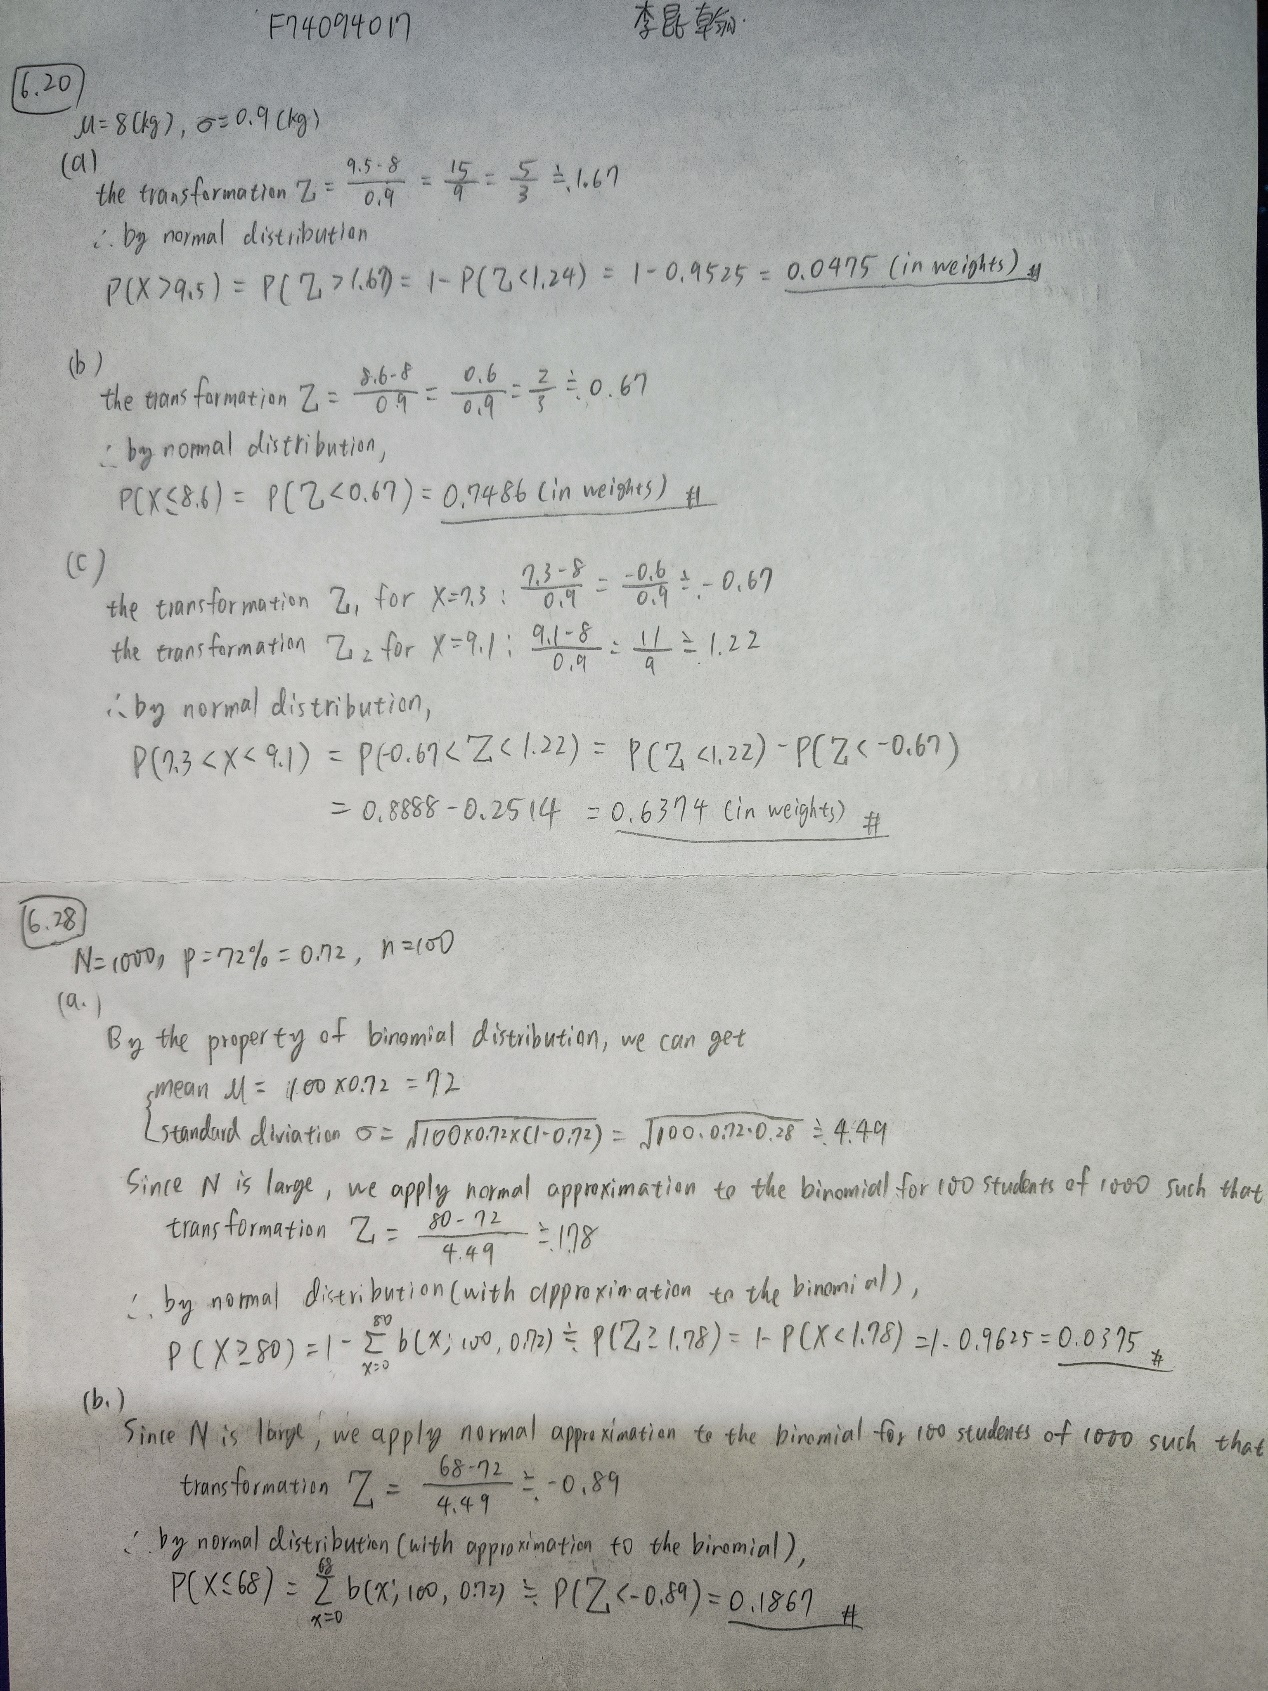 F74094017 李昆翰
6.20
μ=8(kg), σ=0.9(kg)
(a)
the transformation Z = (9.5-8)/0.9 = 15/9 = 5/3 ≒ 1.67
∴ by normal distribution
P(X>9.5) = P(Z>1.67) = 1-P(Z<1.24) = 1-0.9525 = 0.0475 (in weights) #
(b)
the transformation Z = (8.6-8)/0.9 = 0.6/0.9 = 2/3 ≒ 0.67
∴ by normal distribution,
P(X≤8.6) = P(Z<0.67) = 0.7486 (in weights) #
(c)
the transformation Z₁ for X=7.3 : (7.3-8)/0.9 = -0.6/0.9 ≒ -0.67
the transformation Z₂ for X=9.1 : (9.1-8)/0.9 = 11/9 ≒ 1.22
∴ by normal distribution,
P(7.3<X<9.1) = P(-0.67<Z<1.22) = P(Z<1.22)-P(Z<-0.67)
= 0.8888-0.2514 = 0.6374 (in weights) #
6.28
N=1000, p=72%=0.72, n=100
(a.)
By the property of binomial distribution, we can get
mean μ = 100×0.72 = 72
standard diviation σ = √(100×0.72×(1-0.72)) = √(100·0.72·0.28) ≒ 4.49
Since N is large, we apply normal approximation to the binomial for 100 students of 1000 such that
transformation Z = (80-72)/4.49 ≒ 1.78
∴ by normal distribution (with approximation to the binomial),
P(X≥80) = 1-∑_{x=0}^{80} b(x; 100, 0.72) ≒ P(Z≥1.78) = 1-P(X<1.78) = 1-0.9625 = 0.0375 #
(b.)
Since N is large, we apply normal approximation to the binomial for 100 students of 1000 such that
transformation Z = (68-72)/4.49 ≒ -0.89
∴ by normal distribution (with approximation to the binomial),
P(X≤68) = ∑_{x=0}^{68} b(x; 100, 0.72) ≒ P(Z<-0.89) = 0.1867 #